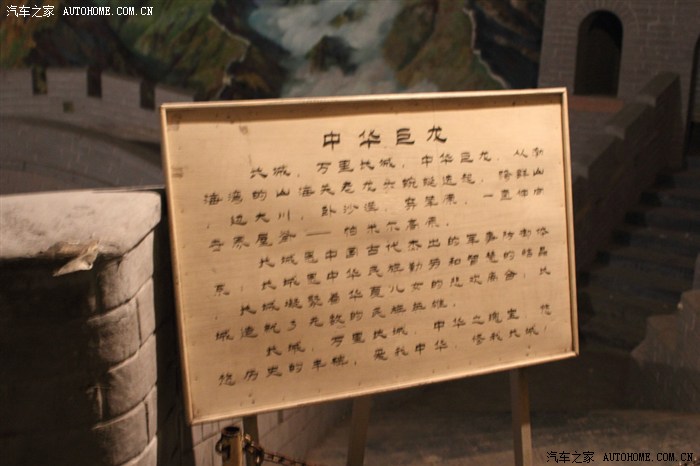 汽车之家 AUTOHOME.COM.CN
中华巨龙
长城，万里长城，中华巨龙，从渤
海湾的山海关老龙头蜿蜒逶迤，跨群山
，过大川，卧沙漠，穿草原，一直
帕米尔高原。
长城是中国古代杰出的军事防御体
系，长城是中华民族勤劳和智慧的结晶
，长城凝聚着华夏儿女的悲欢离合，长
城造就了无数的民族英雄。
长城，万里长城，中华之瑰宝，悠
悠历史的丰碑，爱我中华，修我长城。
汽车之家 AUTOHOME.COM.CN